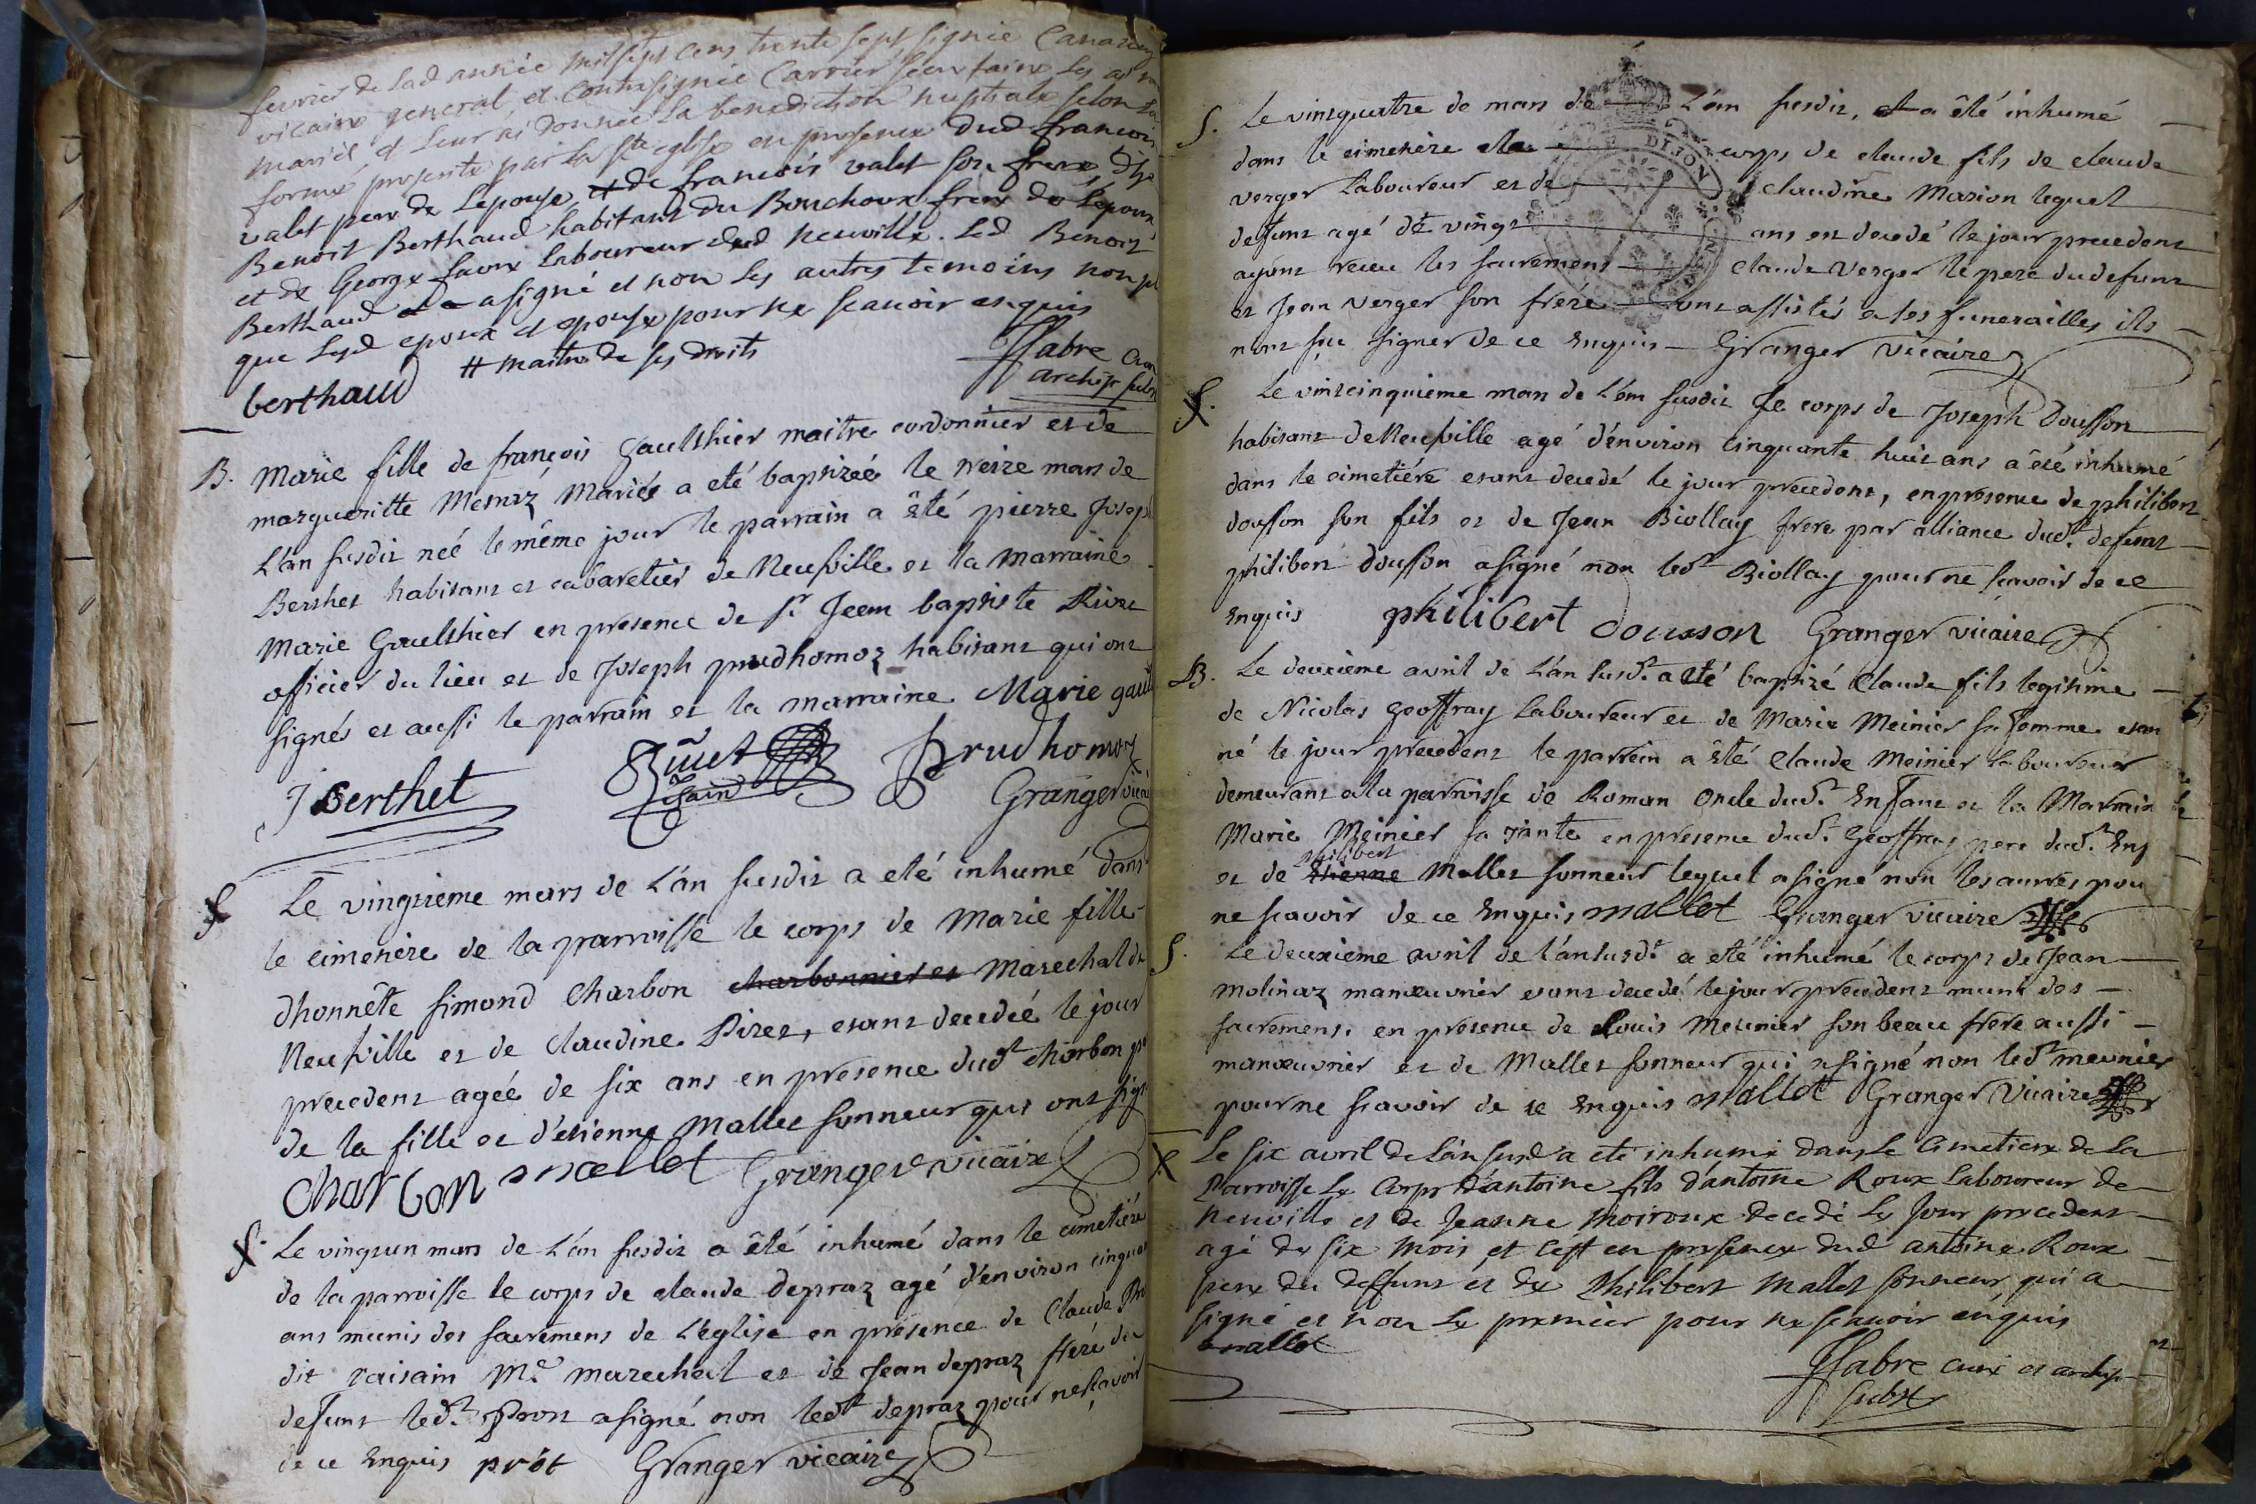 fevrier de lad année mil sept cens trente sept signée
vicaire general, et contresignée Carrier secretaire les ai
mariés, et leur ai donnée la benediction nuptiale selon la
forme prescrite par la Ste eglise en presence dud francois
valet pere de lepouse, # de francois valet son frere, de
Benoit Berthaud habitant du Bouchoux frere de lepoux,
et de George favre laboureur dud neuville. Led Benoit
Berthaud a signé et non les autres temoins non pl
que lesd epoux et epouse pour ne scauoir enquis
# maitre de ses droits
berthaud
ffabre
archip subs
B. Marie fille de françois Gaulthier maitre cordonnier et de
margueritte Mesniz Mariés a eté baptizée le treize mars de
L'an susdit neé le même jour le parrain a été pierre Josep
Berthet habitant et cabaretier de Neufville et la Marraine
Marie Gaulthier en presence de Sr Jean baptiste Rivet
officier du lieu et de Joseph prudhomoz habitant qui ont
signés et aussi le parrain et la marraine Marie gaul
J Berthet Prudhomoz
Granger vicai
S Le vingtieme mars de L'an susdit a eté inhumé dans
le cimetière de la parroisse le corps de Marie fille
dhonnête simond Charbon charbonnier et Marechal de
Neufville et de Claudine Pirez, etant decedée le jour
precedent ageé de six ans en presence dudt charbon pe
de la fille et d'etienne Mallet sonneur qui ont sign
Charbon mallet Granger vicaire
S. Le vingtun mars de L'an susdit a été inhumé dans le cimetiére
de la parroisse le corps de claude depraz agé d'environ cinquan
ans munis des sacremens de L'eglise en présence de Claude Pro
dit raisain Me. marechal et de Jean depraz frere du
defunt ledt. Prost a signé non ledt depraz pour ne sçavoir
de ce Enquis prót Granger vicaire
S. Le vintquatre de mars de L'an susdit, a été inhumé
dans le cimetière corps de claude fils de claude
verger Laboureur et de claudine Marion lequel
defunt agé de vingt ans est decedé le jour precedent
DIJON
ayant receu les sacremens claude verger le pere du defunt
et Jean verger son frére ont assistés a ses funerailles ils
n'ont sçu signer de ce Enquis Granger vicaire
S. Le vintcinquieme mars de L'an susdit Le corps de Joseph Dousson
habitant de Neufville agé d'environ cinquante huit ans a été inhumé
dans le cimetiére etant decedé le jour precedent, en presence de philibert
dousson son fils et de Jean Biollay frere par alliance dudt. defunt
philibert dousson a signé non ledt Biollay pour ne scavoir de ce
Enquis philibert dousson Granger vicaire
B. Le deuxieme avril de L'an susdt. a eté baptizé Claude fils legitime
de Nicolas Geoffray Laboureur et de Marie Meinier sa femme etan
né le jour precedent le parrein a été Claude Meinier laboureur
demeurant a la parroisse de Roman oncle dudt. Enfant et la Marrain
Marie Meinier sa tante en presence dudt. Geoffray pere dudt. Enf
philibert
et de Etienne Mallet sonneur lequel a signé non les autres pou
ne scavoir de ce Enquis, mallet Granger vicaire
S. Le deuxieme avril de l'an susdt. a eté inhumé le corps de Jean
molinaz manœuvrier etant decedé le jour precedent muni des
sacremens. en presence de Louis Meunier son beau frere aussi
manœuvrier et de Mallet sonneur qui a signé non ledt meunier
pour ne scavoir de ce Enquis mallet Granger Vicaire
S Le six avril de L'an susd a eté inhumé dans le Cimetiere de La
Parroisse Le Corps d'antoine fils d'antoine Roux laboureur de
Neuville et de Jeanne Moiroux decedé Le Jour precedent
agé de six mois et c'est en presence dud antoine Roux
pere du deffunt et de Philibert Mallet sonneur, qui a
signé et non Le premier pour ne scauoir enquis
mallet
ffabre curé et archip
subst